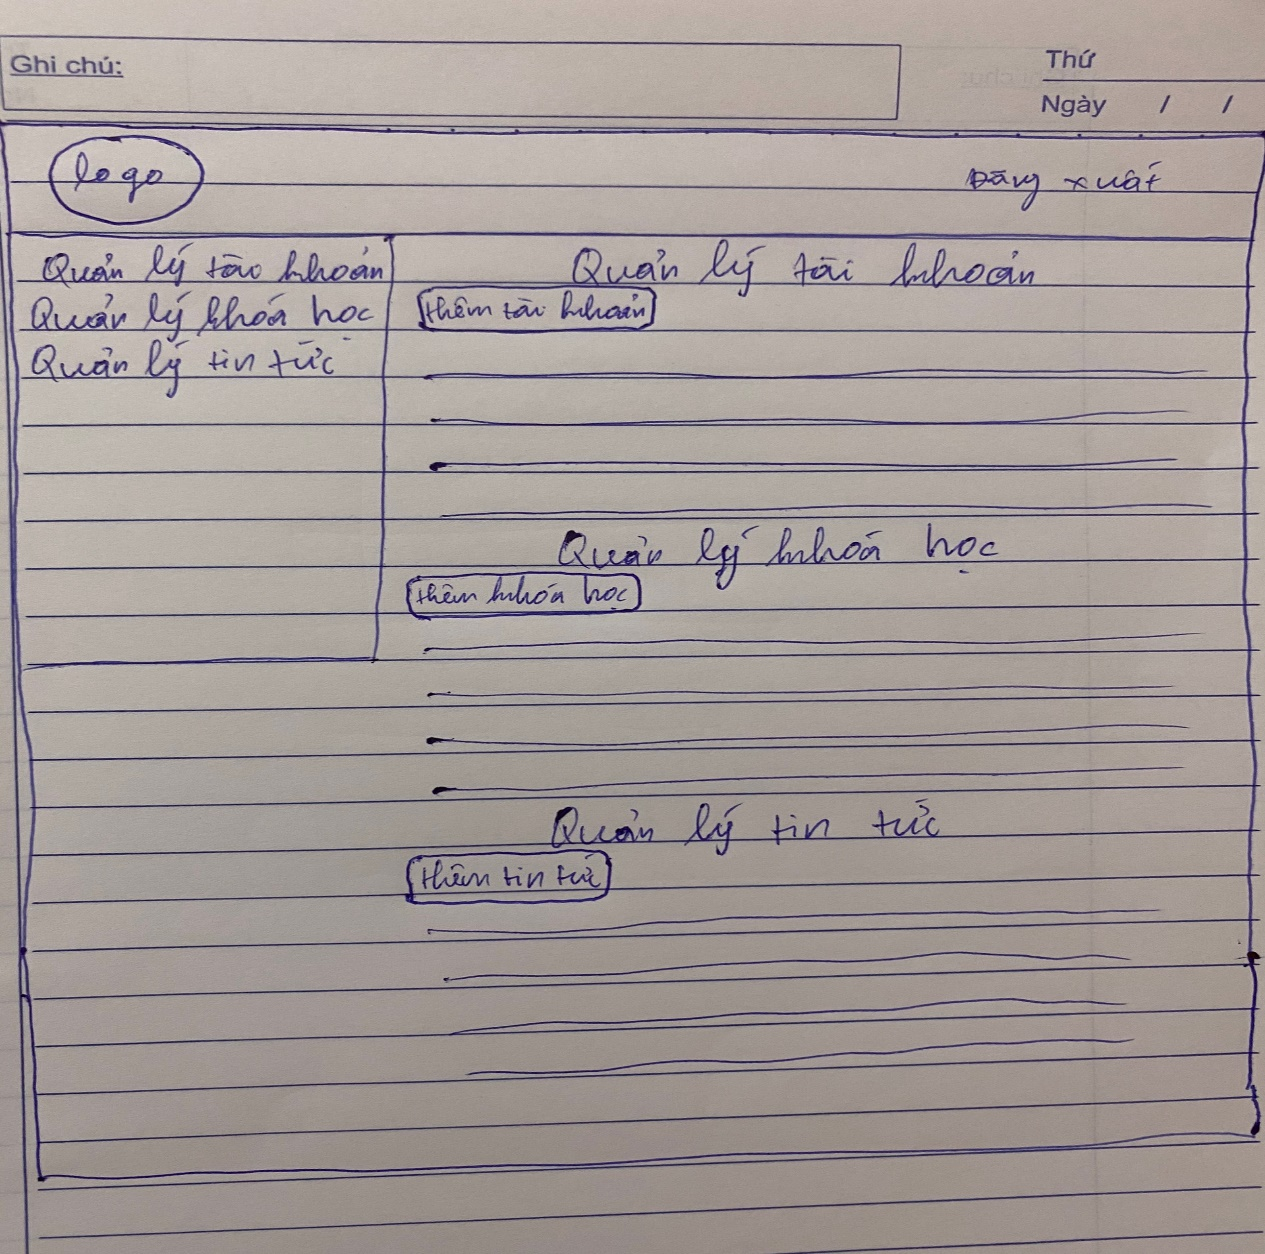 Ghi chú:
Thứ
Ngày / /
logo
Đăng xuất
Quản lý tài khoản
Quản lý khoá học
Quản lý tin tức
Quản lý tài khoản
thêm tài khoản
Quản lý khoá học
thêm khoá học
Quản lý tin tức
thêm tin tức